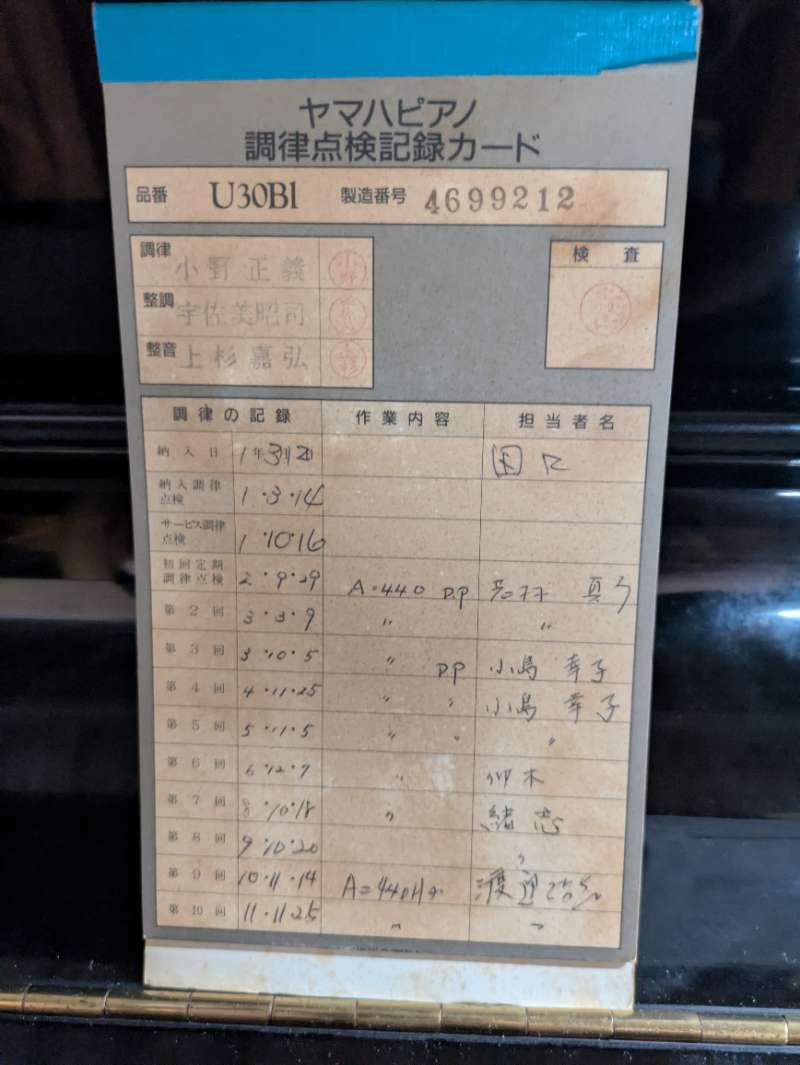 ヤマハピアノ
調律点検記録カード
品番 U30Bl 製造番号 4699212
調律 小野正義
検査
整調 宇佐美昭司
整音 上杉嘉弘
調律の記録 作業内容 担当者名
納入日 1年3月2日
納入調律点検 1・3・14
サービス調律点検 1・10・16
初回定期調律点検 2・9・29 A・440 P.P
第2回 3・3・9 〃 〃
第3回 3・10・5 〃 P.P 小島 幸子
第4回 4・11・25 〃 〃 小島 幸子
第5回 5・11・5 〃 〃 〃
第6回 6・12・7 〃
第7回 8・10・18 〃
第8回 9・10・20 〃
第9回 10・11・14 A=440Hz 渡辺
第10回 11・11・25 〃 〃